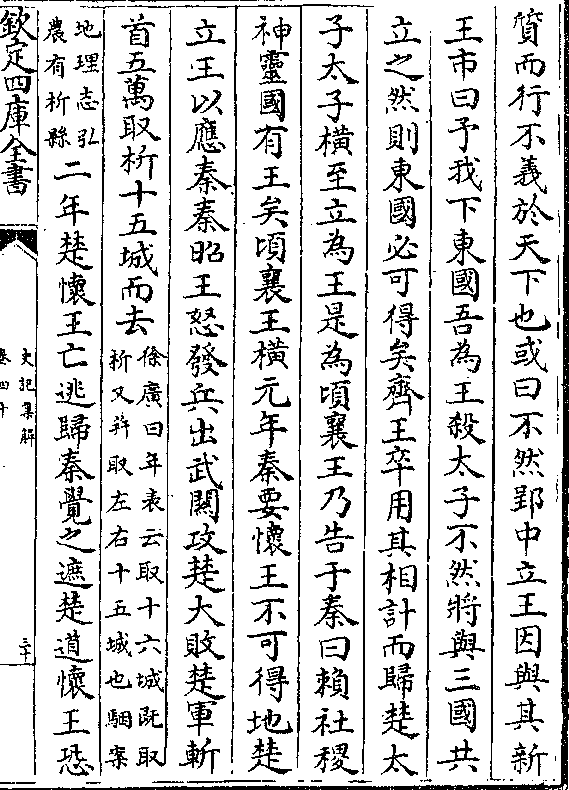 質而行不義於天下也或曰不然郢中立王因與其新
王市曰予我下東國吾為王殺太子不然將與三國共
立之然則東國必可得矣齊王卒用其相計而歸楚太
子太子橫至立為王是為頃襄王乃告于秦曰賴社稷
神靈國有王矣頃襄王橫元年秦要懷王不可得地楚
立王以應秦秦昭王怒發兵出武關攻楚大敗楚軍斬
首五萬取析十五城而去
徐廣曰年表云取十六城既取
析又并取左右十五城也駰案
地理志弘
農有析縣
二年楚懷王亡逃歸秦覺之遮楚道懷王恐
欽定四庫全書
史記集解
卷四十
三十